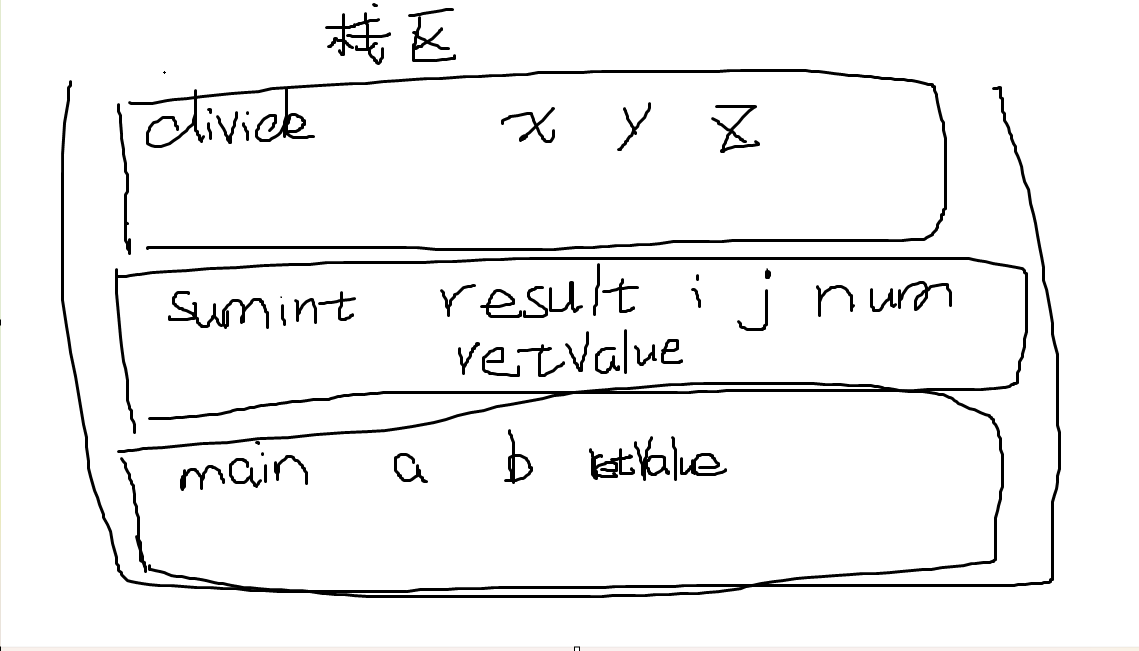 栈区
divide x y z
sumint result i j num
retValue
main a b retValue